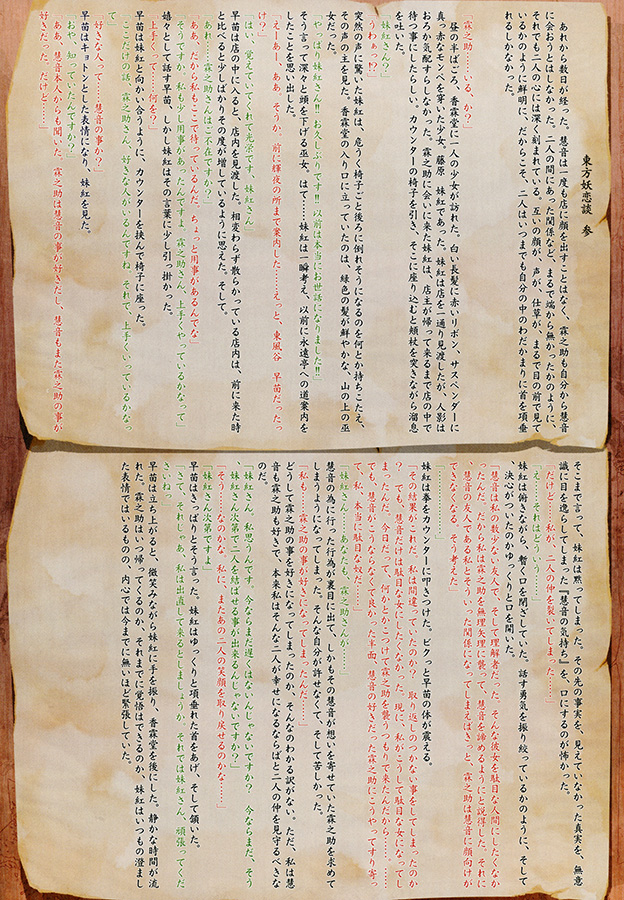 東方妖恋談　参
あれから数日が経った。慧音は一度も店に顔を出すことはなく、霖之助も自分から慧音
に会おうとはしなかった。二人の間にあった関係など、まるで端から無かったかのように、
それでも二人の心には深く刻まれている。互いの顔が、声が、仕草が、まるで目の前で見て
いるかのように鮮明に、だからこそ、二人はいつまでも自分の中のわだかまりに首を項垂
れるしかなかった。
「霖之助……いる、か？」
昼の半ばごろ、香霖堂に一人の少女が訪れた。白い長髪に赤いリボン、サスペンダーに
真っ赤なモンペを穿いた少女、藤原　妹紅であった。妹紅は店を一通り見渡したが、人影は
おろか気配すらしなかった。霖之助に会いに来た妹紅は、店主が帰って来るまで店の中で
待つ事にしたらしい。カウンターの椅子を引き、そこに座り込むと頬杖を突きながら溜息
を吐いた。
「妹紅さん？」
「うわぁっ!?」
突然の声に驚いた妹紅は、危うく椅子ごと後ろに倒れそうになるのを何とか持ちこたえ、
その声の主を見た。香霖堂の入り口に立っていたのは、緑色の髪が鮮やかな、山の上の巫
女だった。
「やっぱり妹紅さん!!　お久しぶりです!!　以前は本当にお世話になりました!!」
そう言って深々と頭を下げる巫女、はて……妹紅は一瞬考え、以前に永遠亭への道案内を
したことを思い出した。
「えーあー、ああ、そうか、前に輝夜の所まで案内した……えっと、東風谷　早苗だったっ
け？」
「はい、覚えていてくれて光栄です、妹紅さん」
早苗は店の中に入ると、店内を見渡した。相変わらず散らかっている店内は、前に来た時
と比べると少しばかりその度が増しているように思えた。そして。
「あれ……霖之助さんはご不在ですか？」
「ああ、だから私もここで待っているんだ、ちょっと用事があるんでな」
「そうですか、私も少し用事があったんですよ、霖之助さん、上手くやっているかなって」
嬉々として話す早苗、しかし妹紅はその言葉に少し引っ掛かった。
「上手く……何を？」
早苗は妹紅と向かい合うように、カウンターを挟んで椅子に座った。
「ここだけの話、霖之助さん、好きな人がいるんですね、それで、上手くいっているかなっ
て」
「好きな人って……慧音の事か？」
早苗はキョトンとした表情になり、妹紅を見た。
「おや、知っていたんですか？」
「ああ、慧音本人からも聞いた。霖之助は慧音の事が好きだし、慧音もまた霖之助の事が
好きだった。だけど……」
そこまで言って、妹紅は黙ってしまった。その先の事実を、見えていなかった真実を、無意
識に目を逸らしてしまった『慧音の気持ち』を、口にするのが怖かった。
「だけど……私が、二人の仲を裂いてしまった……」
「え……それはどういう……」
妹紅は俯きながら、暫く口を閉ざしていた。話す勇気を振り絞っているかのように、そして
、決心がついたのかゆっくりと口を開いた。
「慧音は私の数少ない友人で、そして理解者だった。そんな彼女を駄目な人間にしたくなか
ったんだ。だから私は霖之助を無理矢理に襲って、慧音を諦めるようにと説得した。それに
、慧音の友人である私とそういった関係になってしまえばきっと、霖之助は慧音に顔向けが
できなくなる、そう考えた」
妹紅は拳をカウンターに叩きつけた。ビクっと早苗の体が震える。
「その結果がこれだ、私は間違っていたのか？　取り返しのつかない事をしてしまったのか
？　でも、慧音だけは駄目な女にしたくなかった。現に、私がこうして駄目な女になってし
まったんだ、今日だって、何かとかこつけて霖之助を襲うつもりで来たんだから……
でも、慧音がこうならなくて良かった半面、慧音の好きだった霖之助にこうやってすり寄っ
て、私、本当に駄目な女だ……」
「妹紅さん……あなたも、霖之助さんが……」
「私も……霖之助の事が好きになってしまったんだ……」
慧音の為に行った行為が裏目に出て、しかもその慧音が想いを寄せていた霖之助を求めて
しまうようになってしまった。そんな自分が許せなくて、そして苦しかった。
どうして霖之助の事を好きになってしまったのか、そんなのわかる訳がない。ただ、私は慧
音も霖之助も好きで、本来私はそんな二人が幸せになるならばと二人の仲を見守るべきな
のだ。
「妹紅さん、私思うんです。今ならまだ遅くはないんじゃないですか？　今ならまだ、そう
、妹紅さん次第で二人を結はせる事が出来るんじゃないですか？」
「妹紅さん次第ですよ」
「そう……なのかな、私に、またあの二人の笑顔を取り戻せるのかな……」
早苗はきっぱりとそう言った。妹紅はゆっくりと項垂れた首をあげ、そして頷いた。
「さて、それじゃあ、私は出直して来るとしましょうか、それでは妹紅さん、頑張ってくだ
さいねっ」
早苗は立ち上がると、微笑みながら妹紅に手を振り、香霖堂を後にした。静かな時間が流
れた。霖之助はいつ帰ってくるのか、それまでに覚悟はできるのか、妹紅はいつもの澄まし
た表情ではいるものの、内心では今までに無いほど緊張していた。